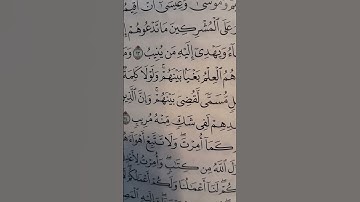 وَمُوسَىٰ وَعِيسَىٰ أَنْ أَقِيمُ
عَلَى الْمُشْرِكِينَ مَا تَدْعُوهُمْ
اءُ وَيَهْدِي إِلَيْهِ مَن يُنِيبُ ١٣
هُمُ الْعِلْمُ بَغْيًا بَيْنَهُمْ وَلَوْلَا كَلِمَةٌ
مُّسَمًّى لَّقُضِيَ بَيْنَهُمْ وَإِنَّ الَّذِينَ
دِهِمْ لَفِي شَكٍّ مِّنْهُ مُرِيبٍ
كَمَا أُمِرْتَ وَلَا تَتَّبِعْ أَهْوَاءَهُ
لَ اللَّهُ مِن كِتَابٍ وَأُمِرْتُ لِأَعْدِ
كُمْ لَنَا أَعْمَالُنَا وَلَكُمْ أَعْمَالُكُمْ